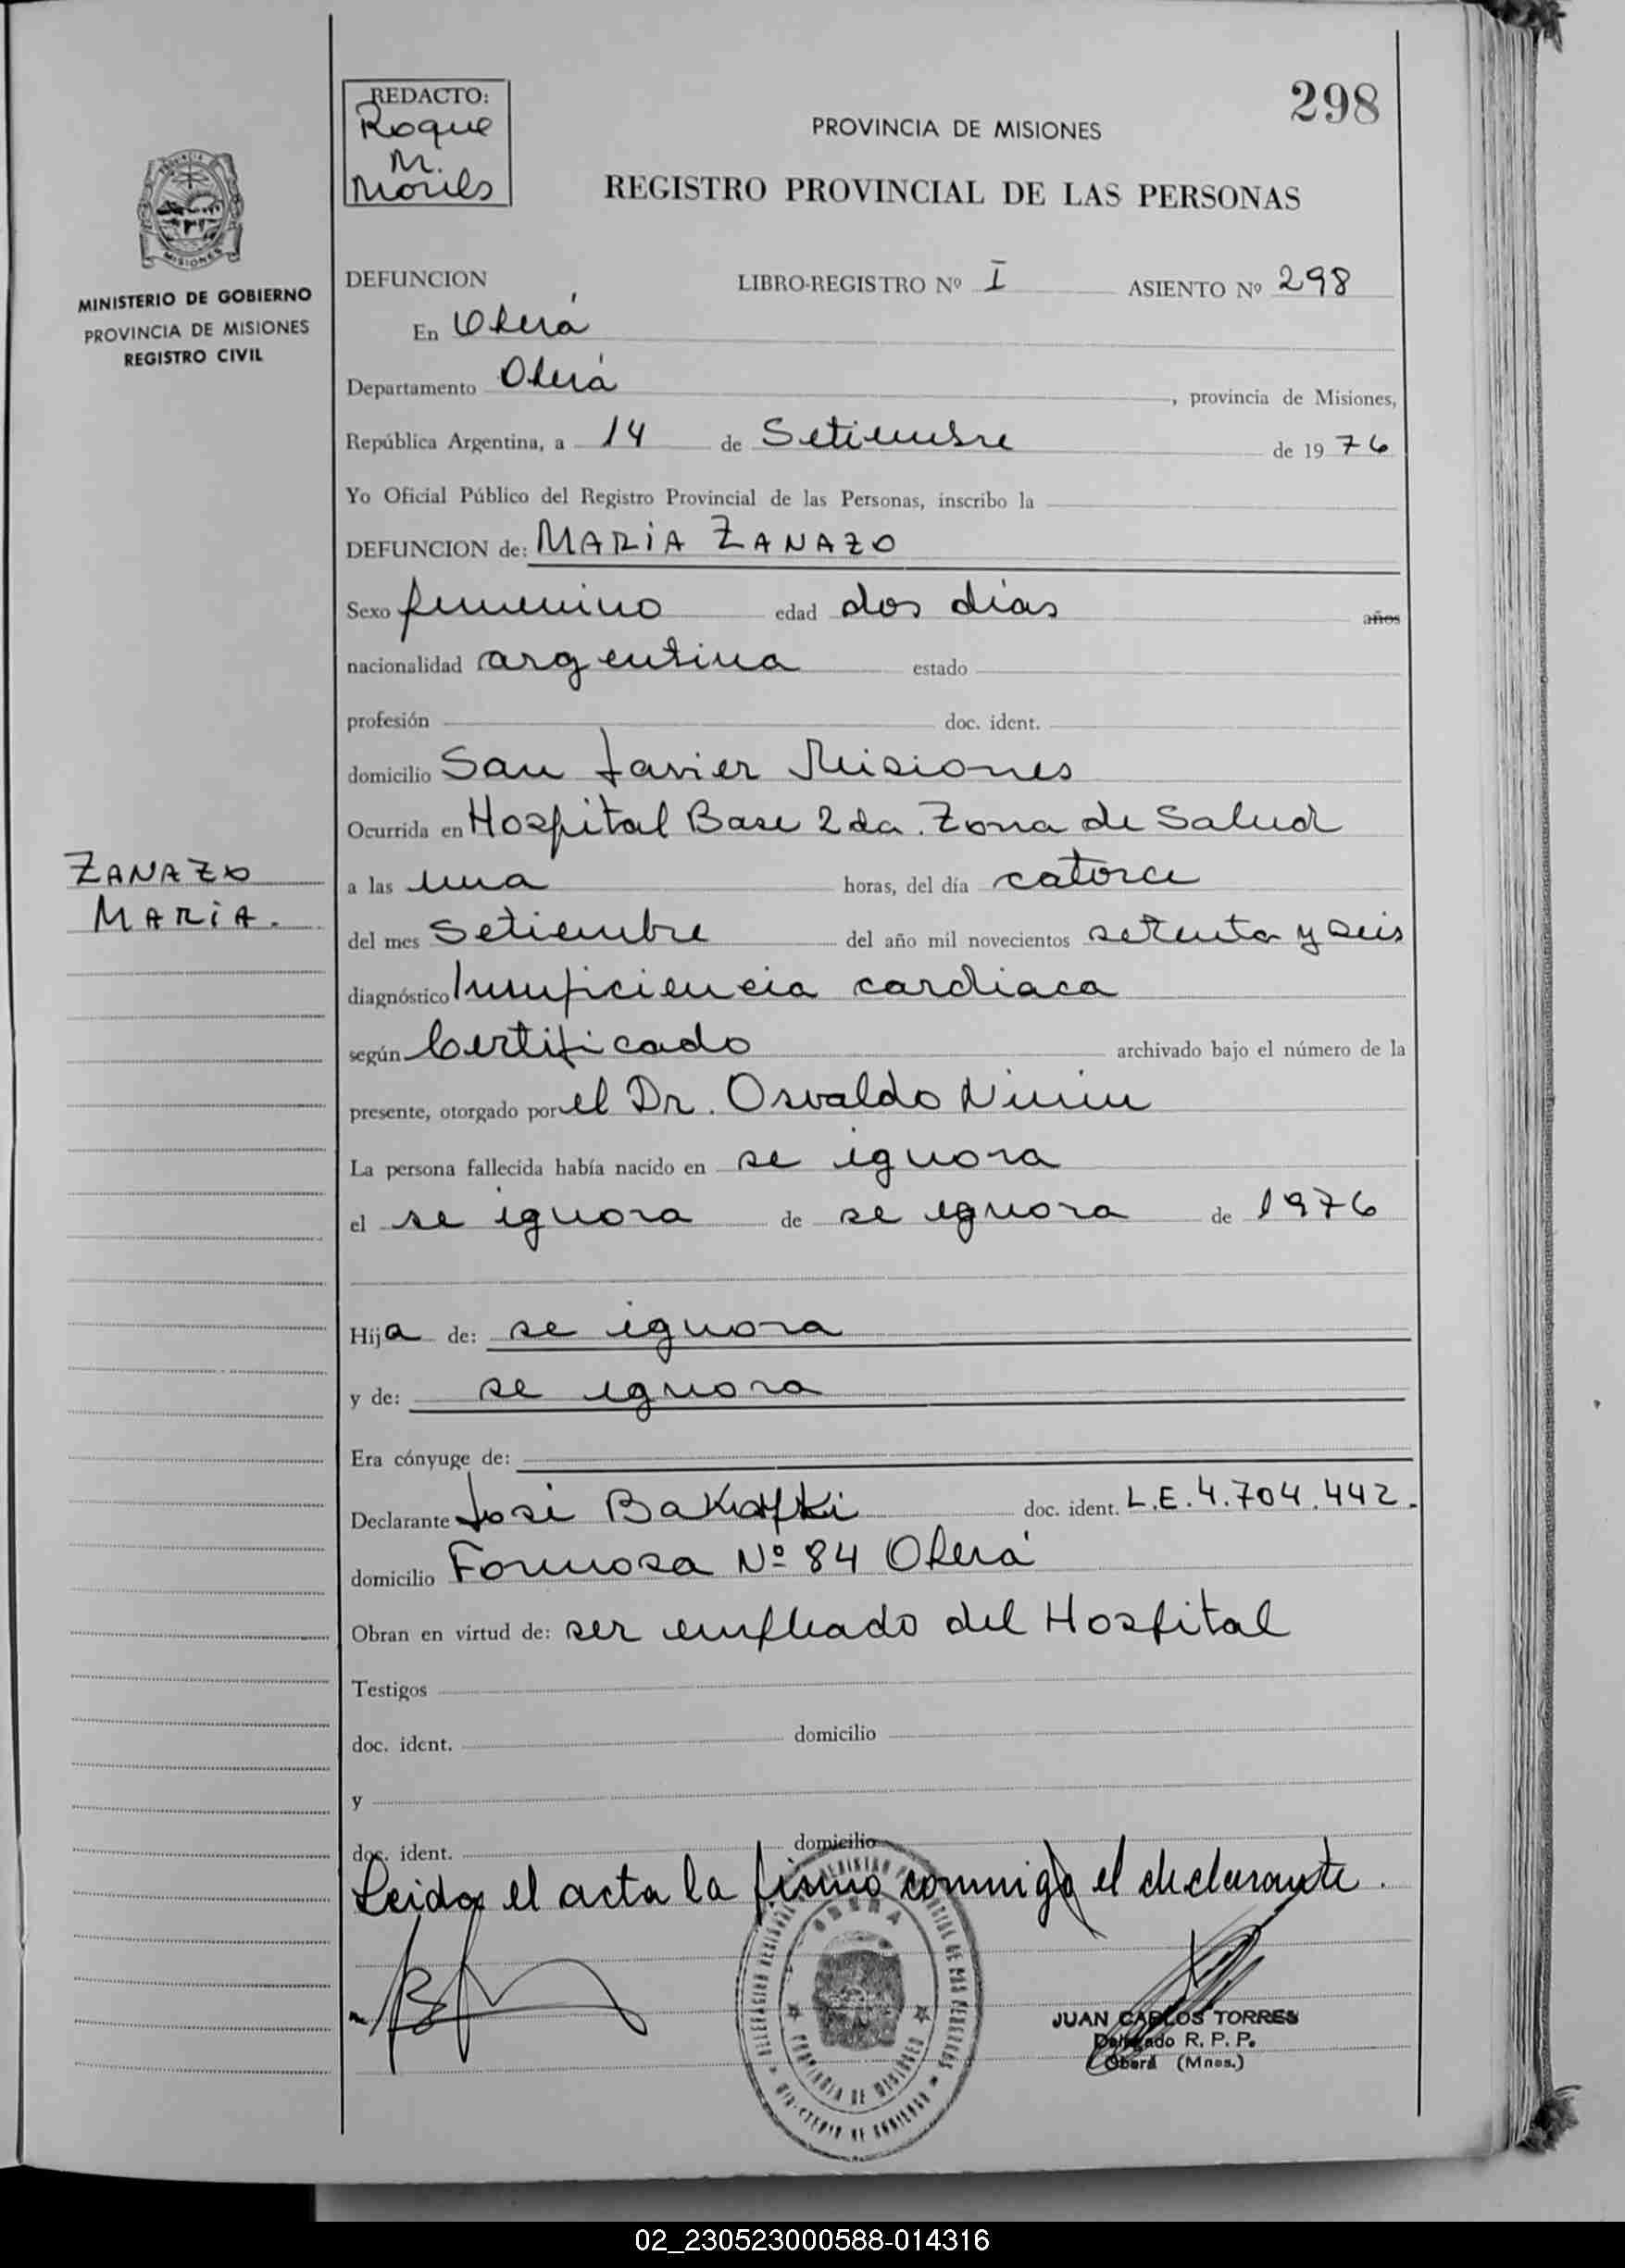 REDACTO:
Roque
M.
298
PROVINCIA DE MISIONES
REGISTRO PROVINCIAL DE LAS PERSONAS
MISIONES
MINISTERIO DE GOBIERNO
PROVINCIA DE MISIONES
REGISTRO CIVIL
DEFUNCION LIBRO-REGISTRO Nº I ASIENTO Nº 298
En Oberá
Departamento Oberá , provincia de Misiones,
República Argentina, a 14 de Setiembre de 1976
Yo Oficial Público del Registro Provincial de las Personas, inscribo la
DEFUNCION de: MARIA ZANAZO
Sexo femenino edad dos días años
nacionalidad argentina estado
profesión doc. ident.
domicilio San Javier Misiones
Ocurrida en Hospital Base 2da. Zona de Salud
ZANAZO
MARIA.
a las una horas, del día catorce
del mes Setiembre del año mil novecientos setenta y seis
diagnóstico Insuficiencia cardiaca
según Certificado archivado bajo el número de la
presente, otorgado por el Dr. Osvaldo
La persona fallecida había nacido en se ignora
el se ignora de se ignora de 1976
Hija de: se ignora
y de: se ignora
Era cónyuge de:
Declarante José doc. ident. L.E. 4.704.442.
domicilio Formosa Nº 84 Oberá
Obran en virtud de: ser empleado del Hospital
Testigos
doc. ident. domicilio
y
doc. ident. domicilio
Leida el acta la firmo conmigo el declarante.
OBERA
PROVINCIA DE MISIONES
JUAN CARLOS TORRES
Delegado R. P. P.
Oberá (Mnes.)
02_230523000588-014316